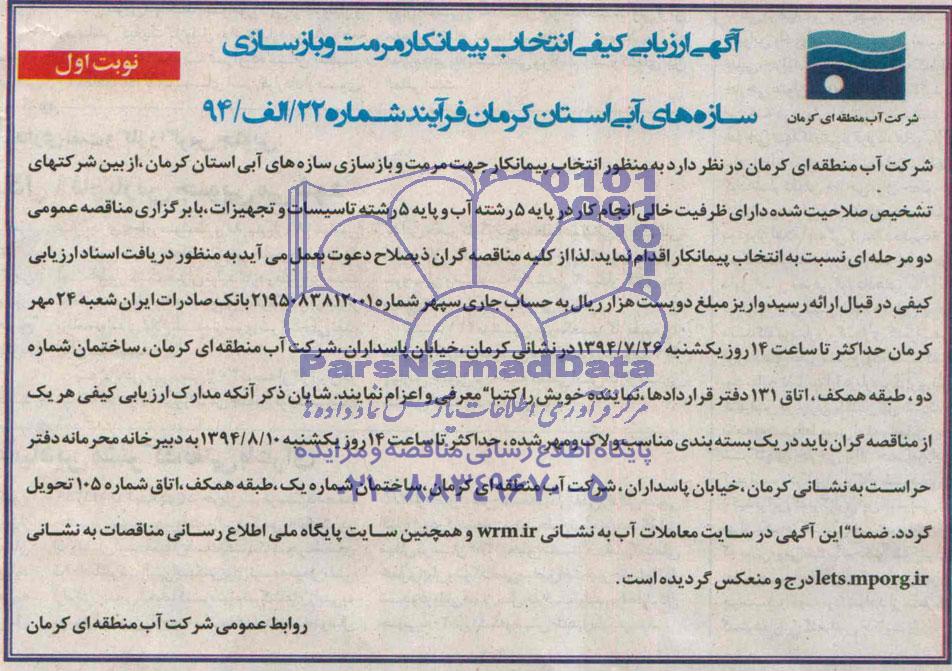 آگهی ارزیابی کیفی انتخاب پیمانکار مرمت و بازسازی
سازه های آبی استان کرمان فرآیند شماره ۲۲/الف/۹۴
نوبت اول
شرکت آب منطقه ای کرمان
شرکت آب منطقه ای کرمان در نظر دارد به منظور انتخاب پیمانکار جهت مرمت و بازسازی سازه های آبی استان کرمان ، از بین شرکتهای
تشخیص صلاحیت شده دارای ظرفیت خالی انجام کار در پایه ۵ رشته آب و پایه ۵ رشته تاسیسات و تجهیزات ، با برگزاری مناقصه عمومی
دو مرحله ای نسبت به انتخاب پیمانکار اقدام نماید. لذا از کلیه مناقصه گران ذیصلاح دعوت بعمل می آید به منظور دریافت اسناد ارزیابی
کیفی در قبال ارائه رسید واریز مبلغ دویست هزار ریال به حساب جاری سپهر شماره ۲۱۹۵۰۸۳۸۱۲۰۰۱ بانک صادرات ایران شعبه ۲۴ مهر
کرمان حداکثر تا ساعت ۱۴ روز یکشنبه ۱۳۹۴/۷/۲۶ در نشانی کرمان ، خیابان پاسداران ، شرکت آب منطقه ای کرمان ، ساختمان شماره
دو ، طبقه همکف ، اتاق ۱۳۱ دفتر قراردادها ، نماینده خویش را کتبا" معرفی و اعزام نمایند. شایان ذکر آنکه مدارک ارزیابی کیفی هر یک
از مناقصه گران باید در یک بسته بندی مناسب و لاک و مهر شده ، حداکثر تا ساعت ۱۴ روز یکشنبه ۱۳۹۴/۸/۱۰ به دبیرخانه محرمانه دفتر
حراست به نشانی کرمان ، خیابان پاسداران ، شرکت آب منطقه ای کرمان ، ساختمان شماره یک ، طبقه همکف ، اتاق شماره ۱۰۵ تحویل
گردد. ضمنا" این آگهی در سایت معاملات آب به نشانی wrm.ir و همچنین سایت پایگاه ملی اطلاع رسانی مناقصات به نشانی
lets.mporg.ir درج و منعکس گردیده است.
روابط عمومی شرکت آب منطقه ای کرمان
ParsNamadData
مرکز فرآوری اطلاعات پارس نماد داده ها
پایگاه اطلاع رسانی مناقصه و مزایده
۰۲۱-۸۸۳۴۹۶۷۰-۵